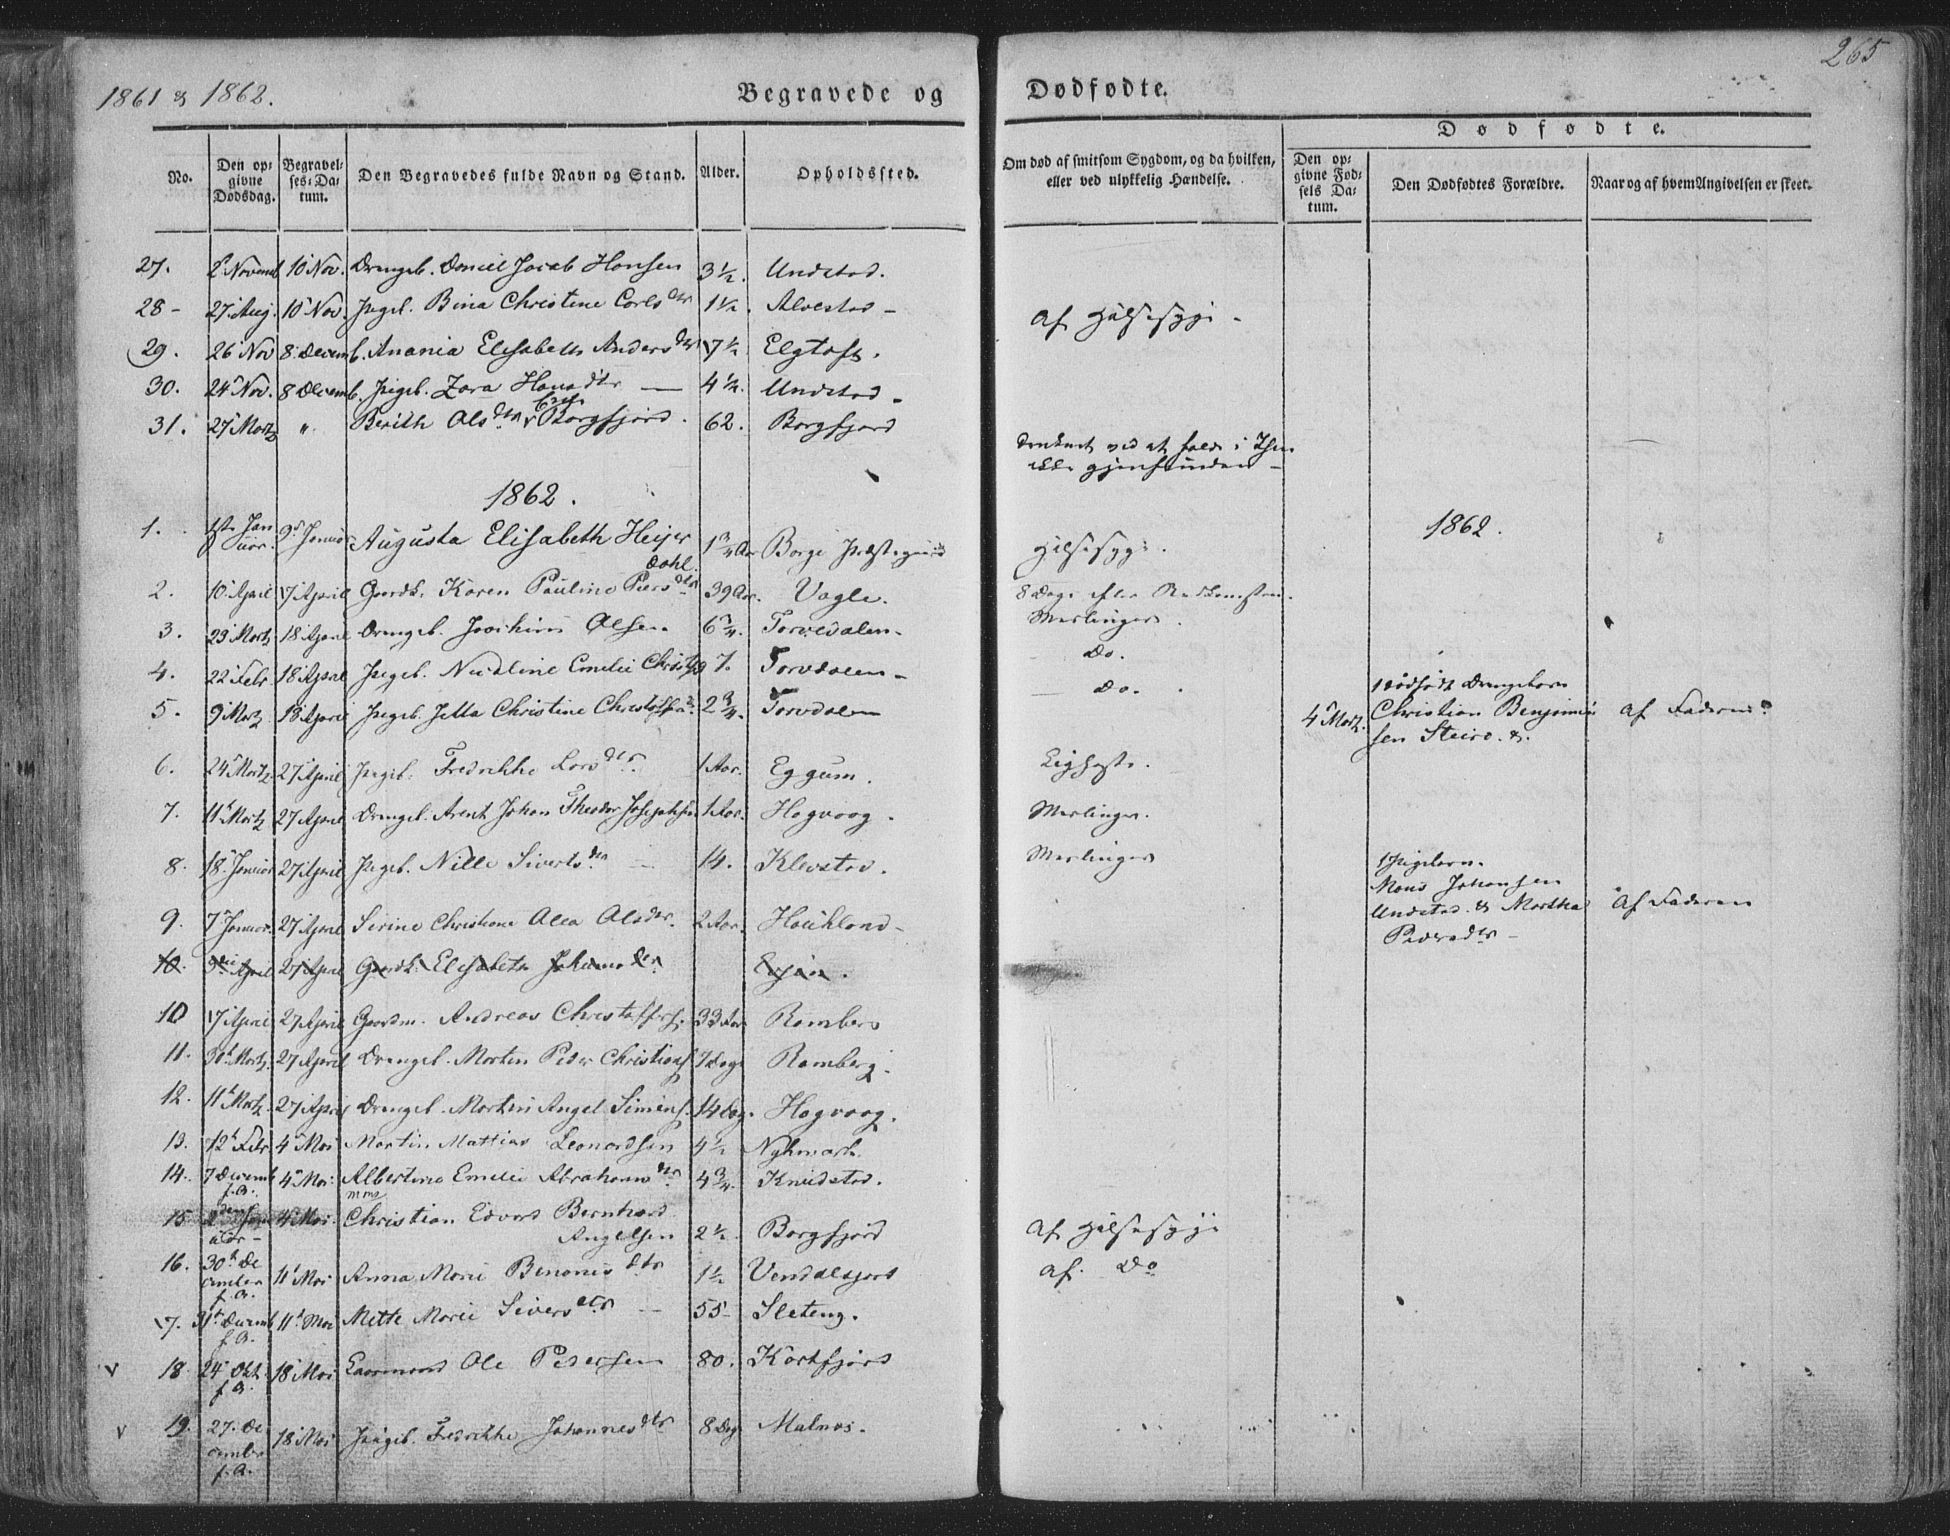 1861 & 1862.
Begravede og
Dødfødte.
265
No.
Den op-
givne
Dødsdag.
Begravel-
ses-Da-
tum.
Den Begravedes fulde Navn og Stand.
Alder.
Opholdssted.
Om død af smitsom Sygdom, og da hvilken,
eller ved ulykkelig Hændelse.
Dødfødte.
Den op-
givne Fød-
sels Da-
tum.
Den Dødfødtes Forældre.
Naar og af hvem Angivelsen er skeet.
27. 2' Novemb 10' Nov. Drengeb. Daniel Jacob Hansen 3 1/2. Undstad.
28 - 27' Aug. 10' Nov. Pigeb. Bina Christine Carlsdtr 1 1/2. Alvestad - af Halssyge -
29. 26 Nov 8' Decemb. Anania Elisabeth Andersdtr 7 1/2 Elgtoft.
30. 24' Nov. 8 Decemb. Pigeb. Zara Hansdtr — 4 1/2. Undstad -
31. 27' Martz " Berith Olsdtr Borgfjord. 62. Borgfjord
druknet ved at falde i Isen
ikke gjenfunden -
1862.
1862.
1. 1ste Jan
uar. 9' Januar Augusta Elisabeth Heijer
Dahl. 1 3/4 Aar Borge Præstegaard Halssyge.
2. 10' April 17 April Gaardk. Karen Pauline Piersdtr 39 Aar. Vagle. 8 Dage efter Nedkomsten.
3. 23 Martz 18 April Drengeb. Joachim Olsen 6 3/4. Torvdalen - Meslinger.
4. 22 Febr 18 April Pigeb. Nicoline Emelie 7. Torvdalen - Do.
5. 9' Martz 18 April Pigeb. Jetta Christine 2 3/4. Torvdalen Do.
4' Martz.
1 dødfødt Drengebarn
Christian Benjamin
sen Steiro. &.
af Faderen
6. 24' Martz 27 April Pigeb. Fredrikke Larsdtr. 1 Aar. Eggum.
7. 11' Martz 27 April Drengeb. Arent Johan Theodor Josephsen 1 Aar. Hagvaag. Meslinger.
8. 18' Januar 27 April Pigeb. Nille Sivertsdtr 14. Klevstad. Meslinger
1 Pigebarn.
Mons Johansen
Undstad & Martha
Pedersdtr -
af Faderen
9. 7' Januar. 27' April Sirine Christiane Alea Olsdtr. 2 Aar. Haukland -
10. April 27 April Gaardk. Elisabeth Johansdtr
10 17' April 27 April Gaardm. Andreas Christoffers. 33 Aar Ramberg
11. 30' Martz. 27 April Drengeb. Morten Peder Christians. 7 Dage Ramberg.
12. 11' Martz. 27 April Drengeb. Martin Angel Simens. 14 Dag. Hagvaag.
13. 12' Febr 4' Mai Martin Mattias Leonardsen 4 1/2
14. 7 Decemb
f. A. 4' Mai Albertine Emelie Abrahamsdtr 4 3/4. Knudstad.
15 2den Jan
uar - 4' Mai. Christian Edvard Bernhard
Angelsen 2 1/2. Borgfjord af Halssyge
16. 30' De
cember
f. A. 11' Mai Anna Marie Benonisdtr 1 1/2 Vendalsjord af Do
17. 31' Decemb
f. A. 11' Mai Mette Marie Siversdtr — 55 Sleteng.
v 18. 24' Okt.
f. A. 18' Mai Ole Pedersen 80. Kartfjord
v 19. 27. De
cember
f. A. 18' Mai Pigeb. Fredrikke Johannesdtr 8 Dag Malnæs.